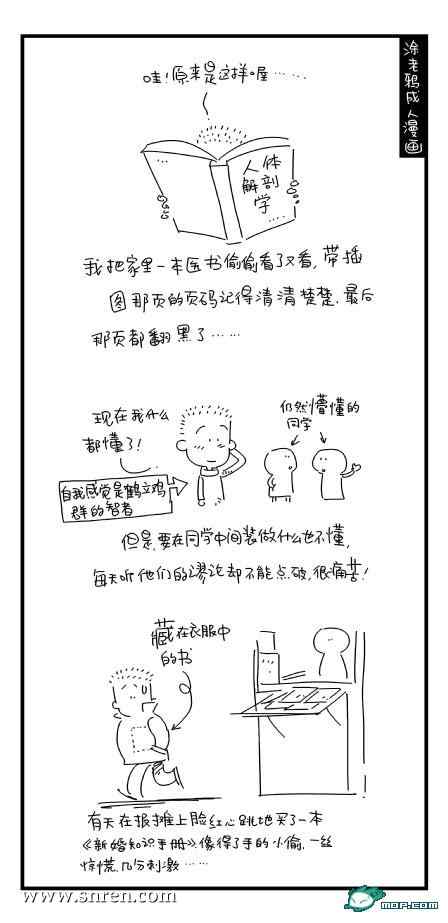 涂老鸦成人漫画
哇!原来是这样喔……
人体
解剖
学
我把家里一本医书偷偷看了又看,带插
图那页的页码记得清清楚楚,最后
那页都翻黑了……
现在我什么
都懂了!
自我感觉是鹤立鸡
群的智者
仍然懵懂的
同学
但是,要在同学中间装做什么也不懂,
每天听他们的谬论却不能点破,很痛苦!
藏在衣服中
的书
有天在报摊上脸红心跳地买了一本
《新婚知识手册》像得了手的小偷,一丝
惊慌,几分刺激……
www.snren.com
MOP.COM